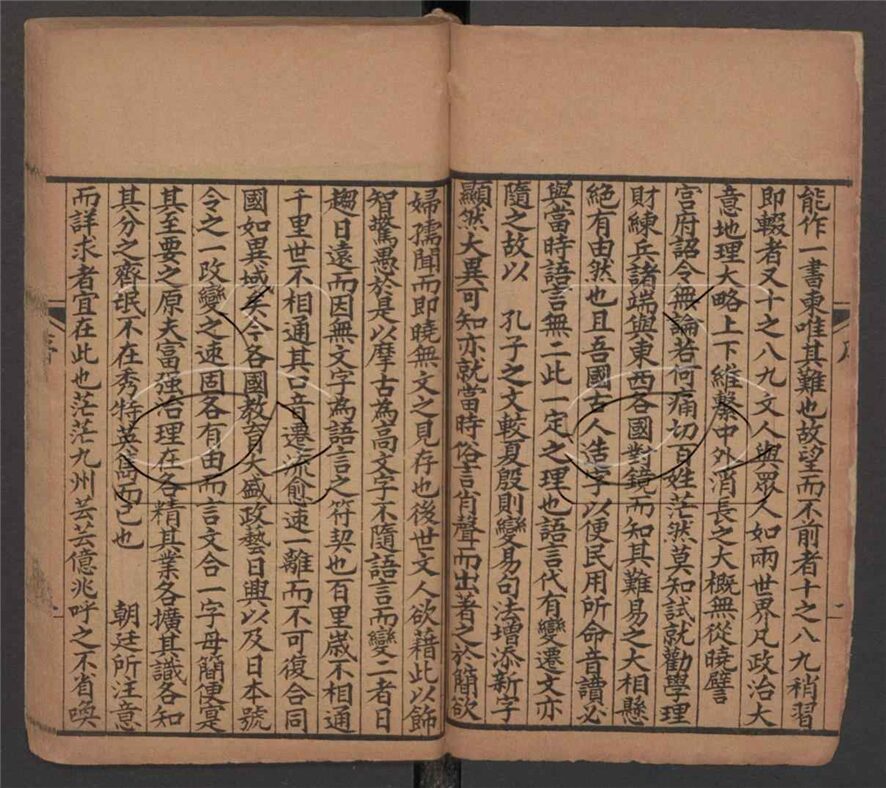 能作一書柬唯其難也故望而不前者十之八九稍習
即輟者又十之八九文人與眾人如兩世界凡政治大
意地理大略上下維繫中外消長之大概無從曉譬
官府詔令無論若何痛切百姓茫然莫知試就勸學理
財練兵諸端與東西各國對鏡而知其難易之大相懸
絕有由然也且吾國古人造字以便民用所命音讀必
與當時語言無二此一定之理也語言代有變遷文亦
隨之故以　孔子之文較夏殷則變易句法增添新字
顯然大異可知亦就當時俗言肖聲而出著之於簡欲
婦孺聞而即曉無文之見存也後世文人欲藉此以飾
智驚愚於是以摩古為高文字不隨語言而變二者日
趨日遠而因無文字為語言之符契也百里歲不相通
千里世不相通其口音遷流愈速一離而不可復合同
國如異域矣今各國教育大盛政藝日興以及日本號
令之一改變之速固各有由而言文合一字母簡便寔
其至要之原夫富強治理在各精其業各擴其識各知
其分之齊氓不在秀特英雋而已也　　朝廷所注意
而詳求者宜在此也茫茫九州芸芸億兆呼之不省喚
序
一
一